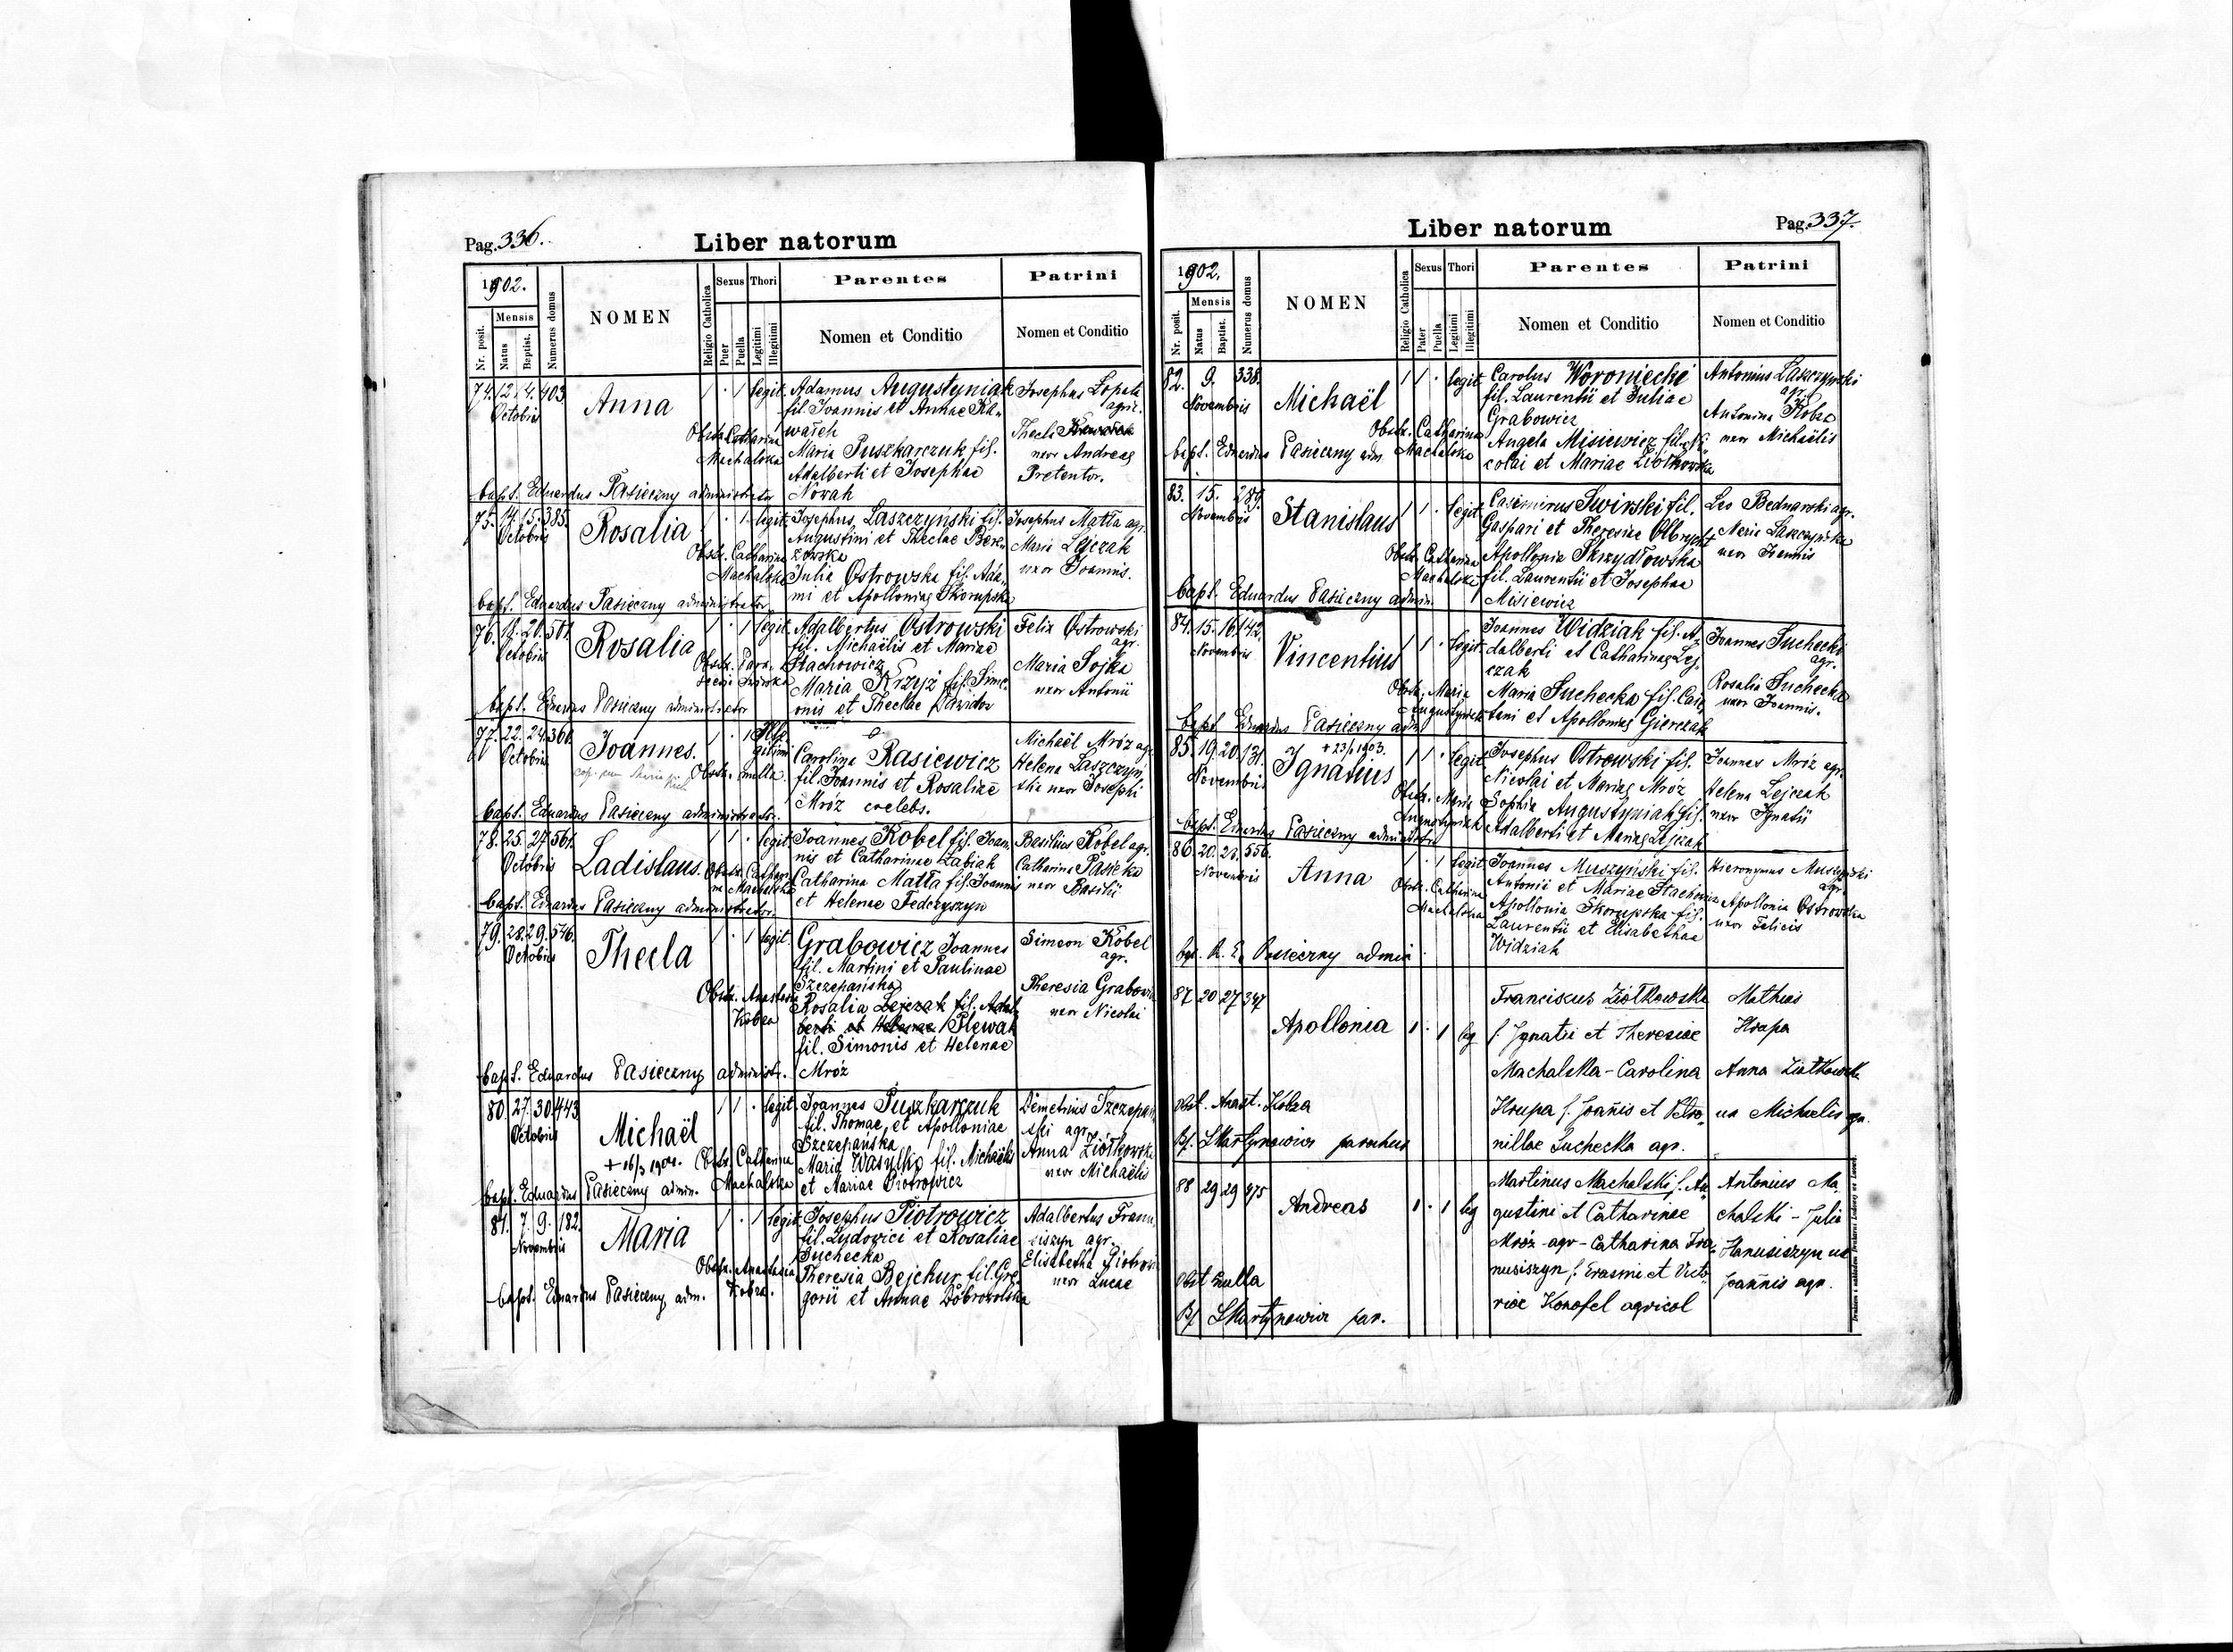 Pag. 336.
Liber natorum
1902.
Nr. posit.
Mensis
Natus
Baptist.
Numerus domus
NOMEN
Religio Catholica
Sexus
Puer
Puella
Thori
Legitimi
Illegitimi
Parentes
Nomen et Conditio
Patrini
Nomen et Conditio
74. 2. 4. 403
Octobris
Anna
1 . 1 legit.
Obstr. Catharina
Machalska
Adamus Augustyniak
fil. Joannis et Annae Ka-
warch
Maria Puszkarczuk fil.
Adalberti et Josephae
Novak
Josephus Lopata
agric.
Thecla
uxor Andreas
Pretentor.
bapt. Eduardus Pasieczny administrator
75. 14. 15. 385.
Octobris
Rosalia
1 . 1. legit.
Obstr. Catharina
Machalska
Josephus Laszczyński fil.
Augustini et Theclae Bere-
zowska
Julia Ostrowska fil. Ada-
mi et Apolloniae Skorupska
Josephus Matła agr.
Maria Lejczak
uxor Joannis.
bapt. Eduardus Pasieczny administrator
76. 20. 501.
Octobris
Rosalia
1 . 1 legit.
Adalbertus Ostrowski
fil. Michaëlis et Mariae
Stachowicz
Maria Krzyż fil. Sime-
onis et Theclae
Felix Ostrowski
agr.
Maria Sojka
uxor Antonii
bapt. Eduardus Pasieczny administrator
77. 22. 24. 366.
Octobris
Joannes.
Obstr. nulla.
Carolina Rasiewicz
fil. Joannis et Rosaliae
Mróz coelebs.
Michaël Mróz agr.
Helena Laszczyń-
ska uxor Josephi
bapt. Eduardus Pasieczny administrator.
78. 25. 27. 561.
Octobris
Ladislaus.
1 1 . legit.
Obstr. Cathari-
na Machalska
Joannes Kobel fil. Joan-
nis et Catharinae Żabiak
Catharina Matła fil. Joannis
et Helenae Fedczyszyn
Basilius Kobel agr.
Catharina Pasieka
uxor Basilii
bapt. Eduardus Pasieczny administrator.
79. 28. 29. 546.
Octobris
Thecla
1 . 1 legit.
Obstr. Anastasia
Kobza
Grabowicz Joannes
fil. Martini et Paulinae
Szczepańska
Rosalia Lejczak fil. Adal-
berti et Helenae Plewak
fil. Simonis et Helenae
Mróz
Simeon Kobel
agr.
Theresia Grabowicz
uxor Nicolai
bapt. Eduardus Pasieczny administr.
80. 27. 30. 443
Octobris
Michaël
+ 16/3 1904.
1 1 . legit.
Obstr. Catharina
Machalska
Joannes Puszkarczuk
fil. Thomae et Apolloniae
Szczepańska
Maria Wasylko fil. Michaëlis
et Mariae Piotrowicz
Demetrius Szczepań-
ski agr.
Anna Ziółkowska
uxor Michaëlis
bapt. Eduardus Pasieczny admin.
81. 7. 9. 182.
Novembris
Maria
1 . 1 legit.
Obstr. Anastasia
Kobza.
Josephus Piotrowicz
fil. Ludovici et Rosaliae
Suchecka
Theresia Bejchur fil. Gre-
gorii et Annae Dobrowolska
Adalbertus Franu-
ciszyn agr.
Elisabetha Piotrowicz
uxor Lucae
bapt. Eduardus Pasieczny adm.
Liber natorum
Pag. 337.
1902.
Nr. posit.
Mensis
Natus
Baptist.
Numerus domus
NOMEN
Religio Catholica
Sexus
Pater
Puella
Thori
Legitimi
Illegitimi
Parentes
Nomen et Conditio
Patrini
Nomen et Conditio
82. 9. 338.
Novembris
Michaël
1 1 . legit.
Obstr. Catharina
Machalska
Carolus Woroniecki
fil. Laurentii et Juliae
Grabowicz
Angela Misiewicz fil. Ni-
colai et Mariae Ziółkowska
Antonius Laszczyński
agr.
Antonina Kobza
uxor Michaëlis
bapt. Eduardus Pasieczny adm.
83. 15. 289.
Novembris
Stanislaus
1 1 . legit.
Obstr. Catharina
Machalska
Casimirus Swirski fil.
Gaspari et Theresiae Olbrycht
Apollonia Skrzydłowska
fil. Laurentii et Josephae
Misiewicz
Leo Bednarski agr.
Maria Laszczyńska
uxor Joannis
bapt. Eduardus Pasieczny admin.
84. 15. 16. 142.
Novembris
Vincentius
1 1 . legit.
Obstr. Maria
Augustyniak
Joannes Widziak fil. A-
dalberti et Catharinae Lej-
czak
Maria Suchecka fil. Caie-
tani et Apolloniae Gierczak
Joannes Suchecki
agr.
Rosalia Suchecka
uxor Joannis.
bapt. Eduardus Pasieczny adm.
85. 19. 20. 131.
Novembris
+ 23/1 1903.
Ignatius
1 1 . legit.
Obstr. Maria
Augustyniak
Josephus Ostrowski fil.
Nicolai et Mariae Mróz
Sophia Augustyniak fil.
Adalberti et Mariae Lejczak
Joannes Mróz agr.
Helena Lejczak
uxor Ignatii
bapt. Eduardus Pasieczny administrator
86. 20. 23. 556.
Novembris
Anna
1 . 1 legit.
Obstr. Catharina
Machalska
Joannes Muszyński fil.
Antonii et Mariae Stachowicz
Apollonia Skorupska fil.
Laurentii et Elisabethae
Widziak
Hieronymus Muszyński
agr.
Apollonia Ostrowska
uxor Felicis
bpt. R. E. Pasieczny admin.
87 20 27 347
Apollonia
1 . 1 leg
Franciscus Ziołkowski
f. Ignatii et Theresiae
Machalska - Carolina
Hrupa f. Joannis et Petro-
nillae Suchecka agr.
Mathias
Hrupa
Anna Ziołkowska
ux Michaelis agr.
Obst. Anast. Kobza
Bp. S Martynowicz parochus
88 29 29 875
Andreas
1 . 1 leg
Martinus Machalski f. Au-
gustini et Catharinae
Mróz - agr - Catharina Fra-
nusiszyn f. Erasmi et Victo-
riae Konofel agricol
Antonius Ma-
chalski - Julia
Hanusiszyn ux
Joannis agr.
Obst nulla
Bp. S Martynowicz par.